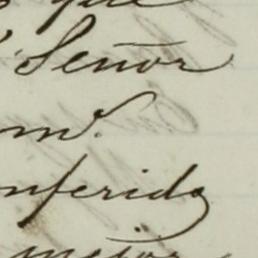 que
Señor
mo.
nferido
mejor